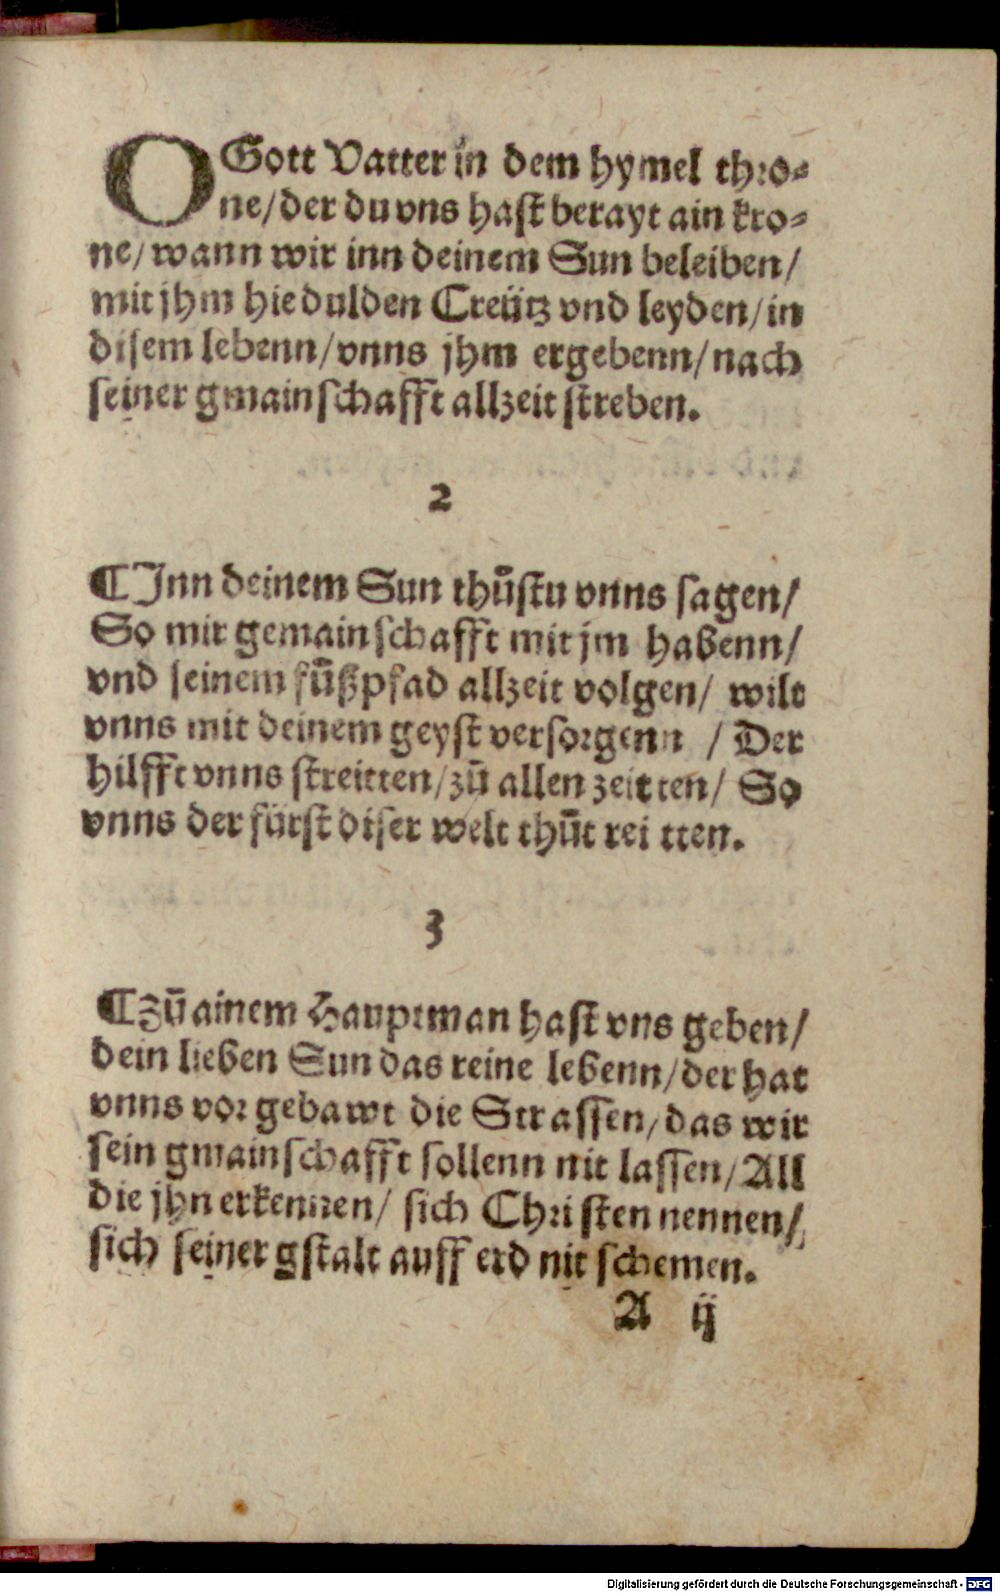 O Gott Vatter in dem hymel thro⸗
ne/ der du vns hast berayt ain kro⸗
ne/ wann wir inn deinem Sun beleiben/
mit jhm hie dulden Creütz vnd leyden/ in
disem lebenn/ vnns jhm ergebenn/ nach
seiner gmainschafft allzeit streben.
2
¶ Inn deinem Sun thůstu vnns sagen/
So mir gemainschafft mit jm habenn/
vnd seinem fůßpfad allzeit volgen/ wilt
vnns mit deinem geyst versorgenn / Der
hilfft vnns streitten/ zů allen zeitten/ So
vnns der fürst diser welt thůt reitten.
3
¶ Zů ainem Hauptman hast vns geben/
dein lieben Sun das reine lebenn/ der hat
vnns vor gebawt die Strassen/ das wir
sein gmainschafft sollenn nit lassen/ All
die jhn erkennen/ sich Christen nennen/
sich seiner gstalt auff erd nit schemen.
A ij
Digitalisierung gefördert durch die Deutsche Forschungsgemeinschaft - DFG